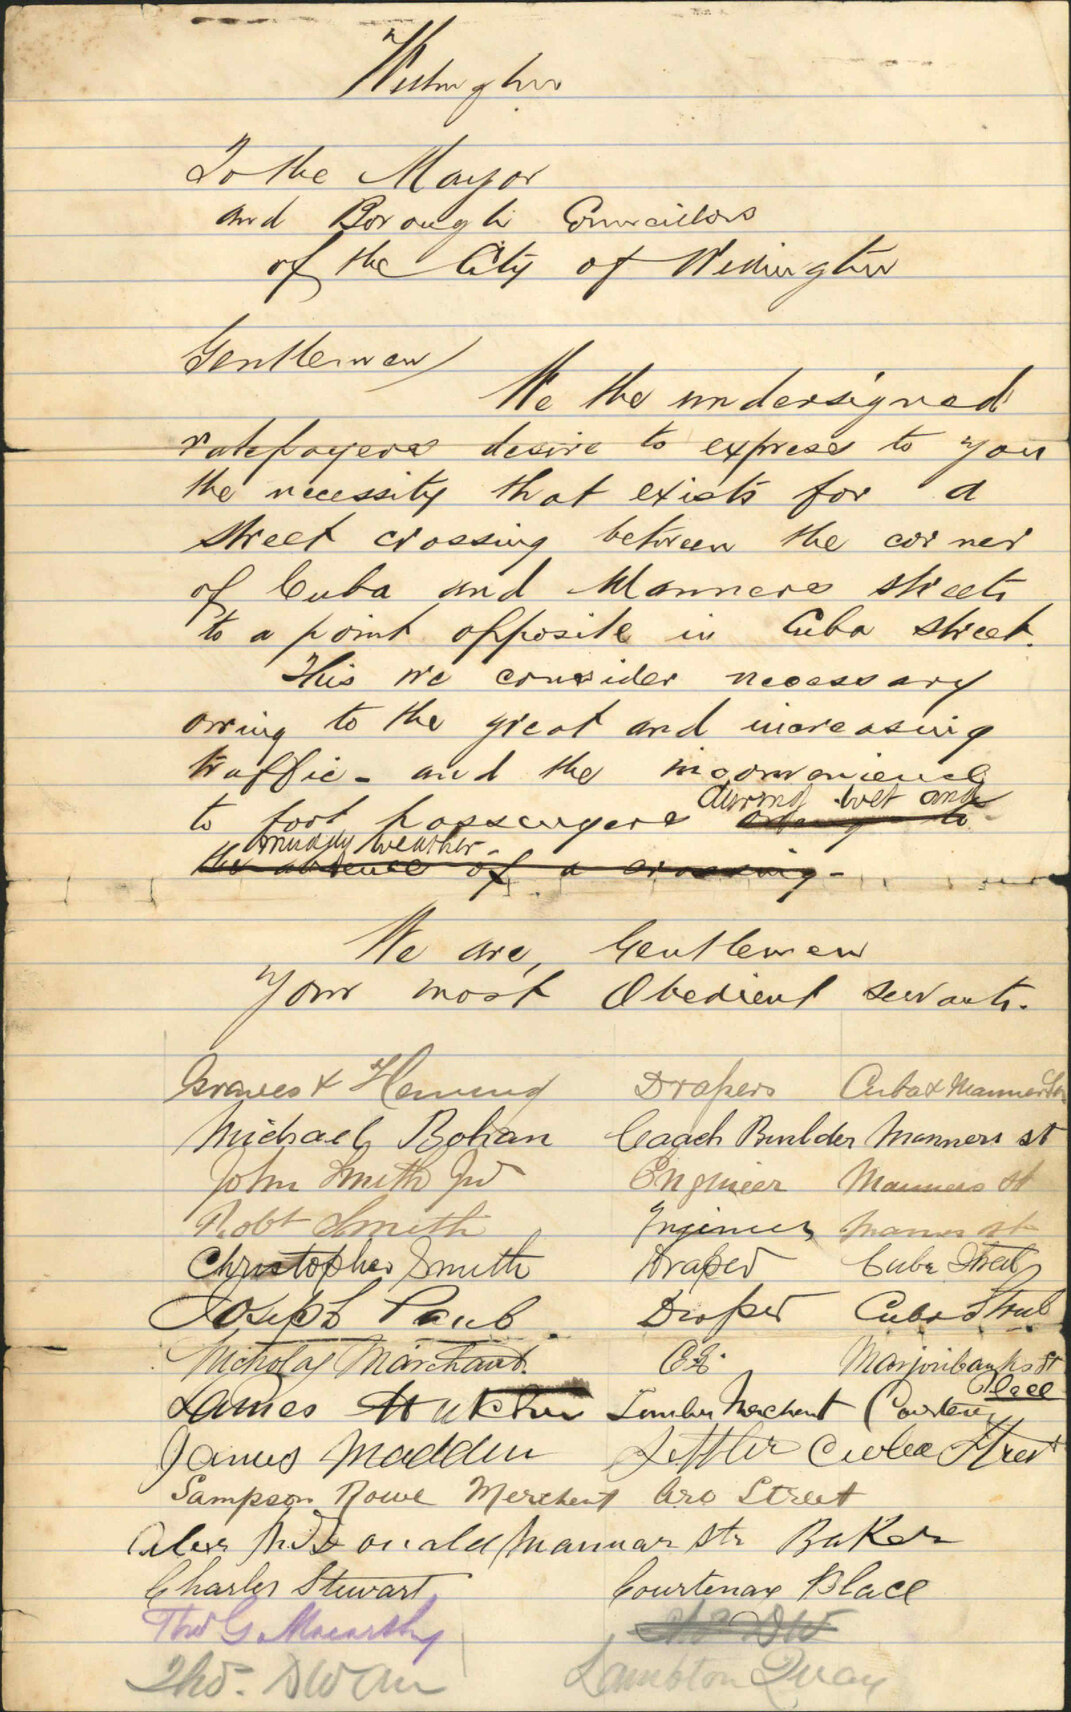 Wellington
To the Mayor
and Borough Councillors
of the City of Wellington
Gentlemen
We the undersigned
ratepayers desire to express to you
the necessity that exists for a
street crossing between the corner
of Cuba and Manners streets
to a point opposite in Cuba street.
This we consider necessary
owing to the great and increasing
traffic - and the inconvenience
during wet and
to foot passengers owing to
muddy weather -
the absence of a crossing -
We are, Gentlemen
Your most Obedient servants.
Graves & Fleming Drapers Cuba & Manners Sts
Michael Bohan Coach Builder Manners st
John Smith Jnr Engineer Manners st
Robt Smith Engineer Manners st
Christopher Smith Draper Cuba Street
Joseph Paul Draper Cuba Street
Nicholas Marchant. C.E. Marjoribanks St
Place
James Timber Merchant Courtenay
James Madden Settler Cuba Street
Sampson Rowe Merchent Aro Street
Alexr McDonald Mannar Str Baker
Charles Stewart Courtenay Place
Thos G Macarthy
Thos. Dwan Lambton Quay